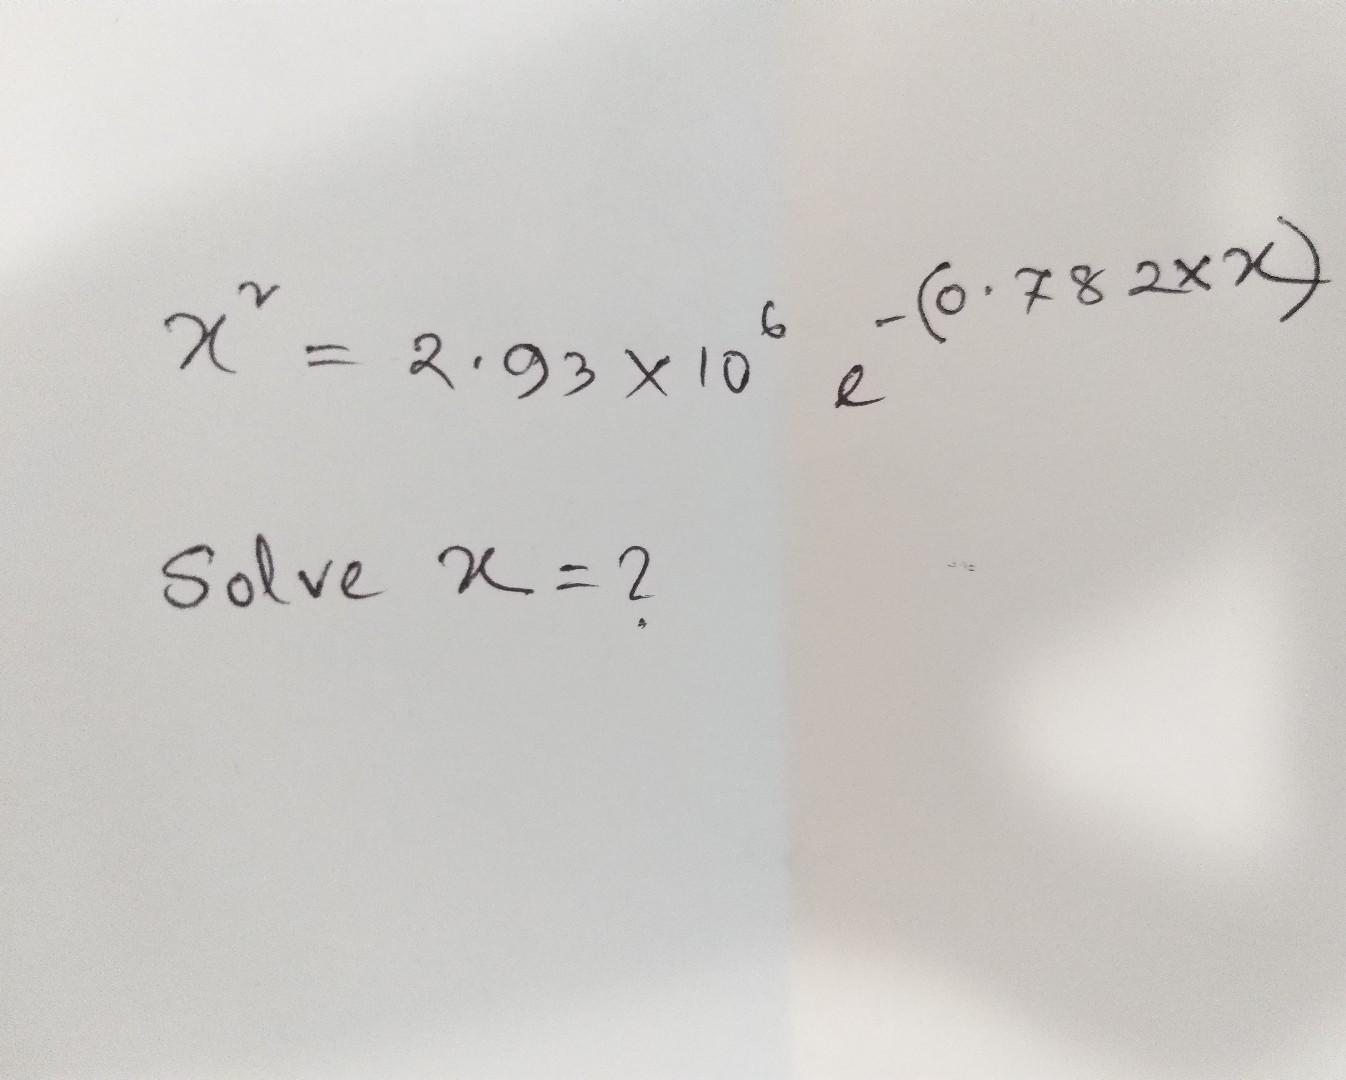 x² = 2.93 × 10⁶ e^-(0.782×x)
Solve x = ?